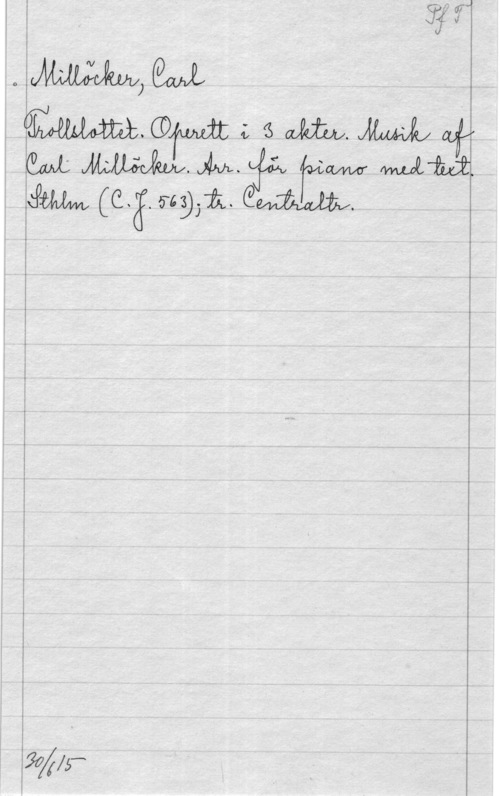 Pf T
Millöcker, Carl
Trollslottet. Operett i 3 akter. Musik af
Carl Millöcker. Arr. för piano med text.
Sthlm (C. J. 563); tr. Centraltr.
30/6 15